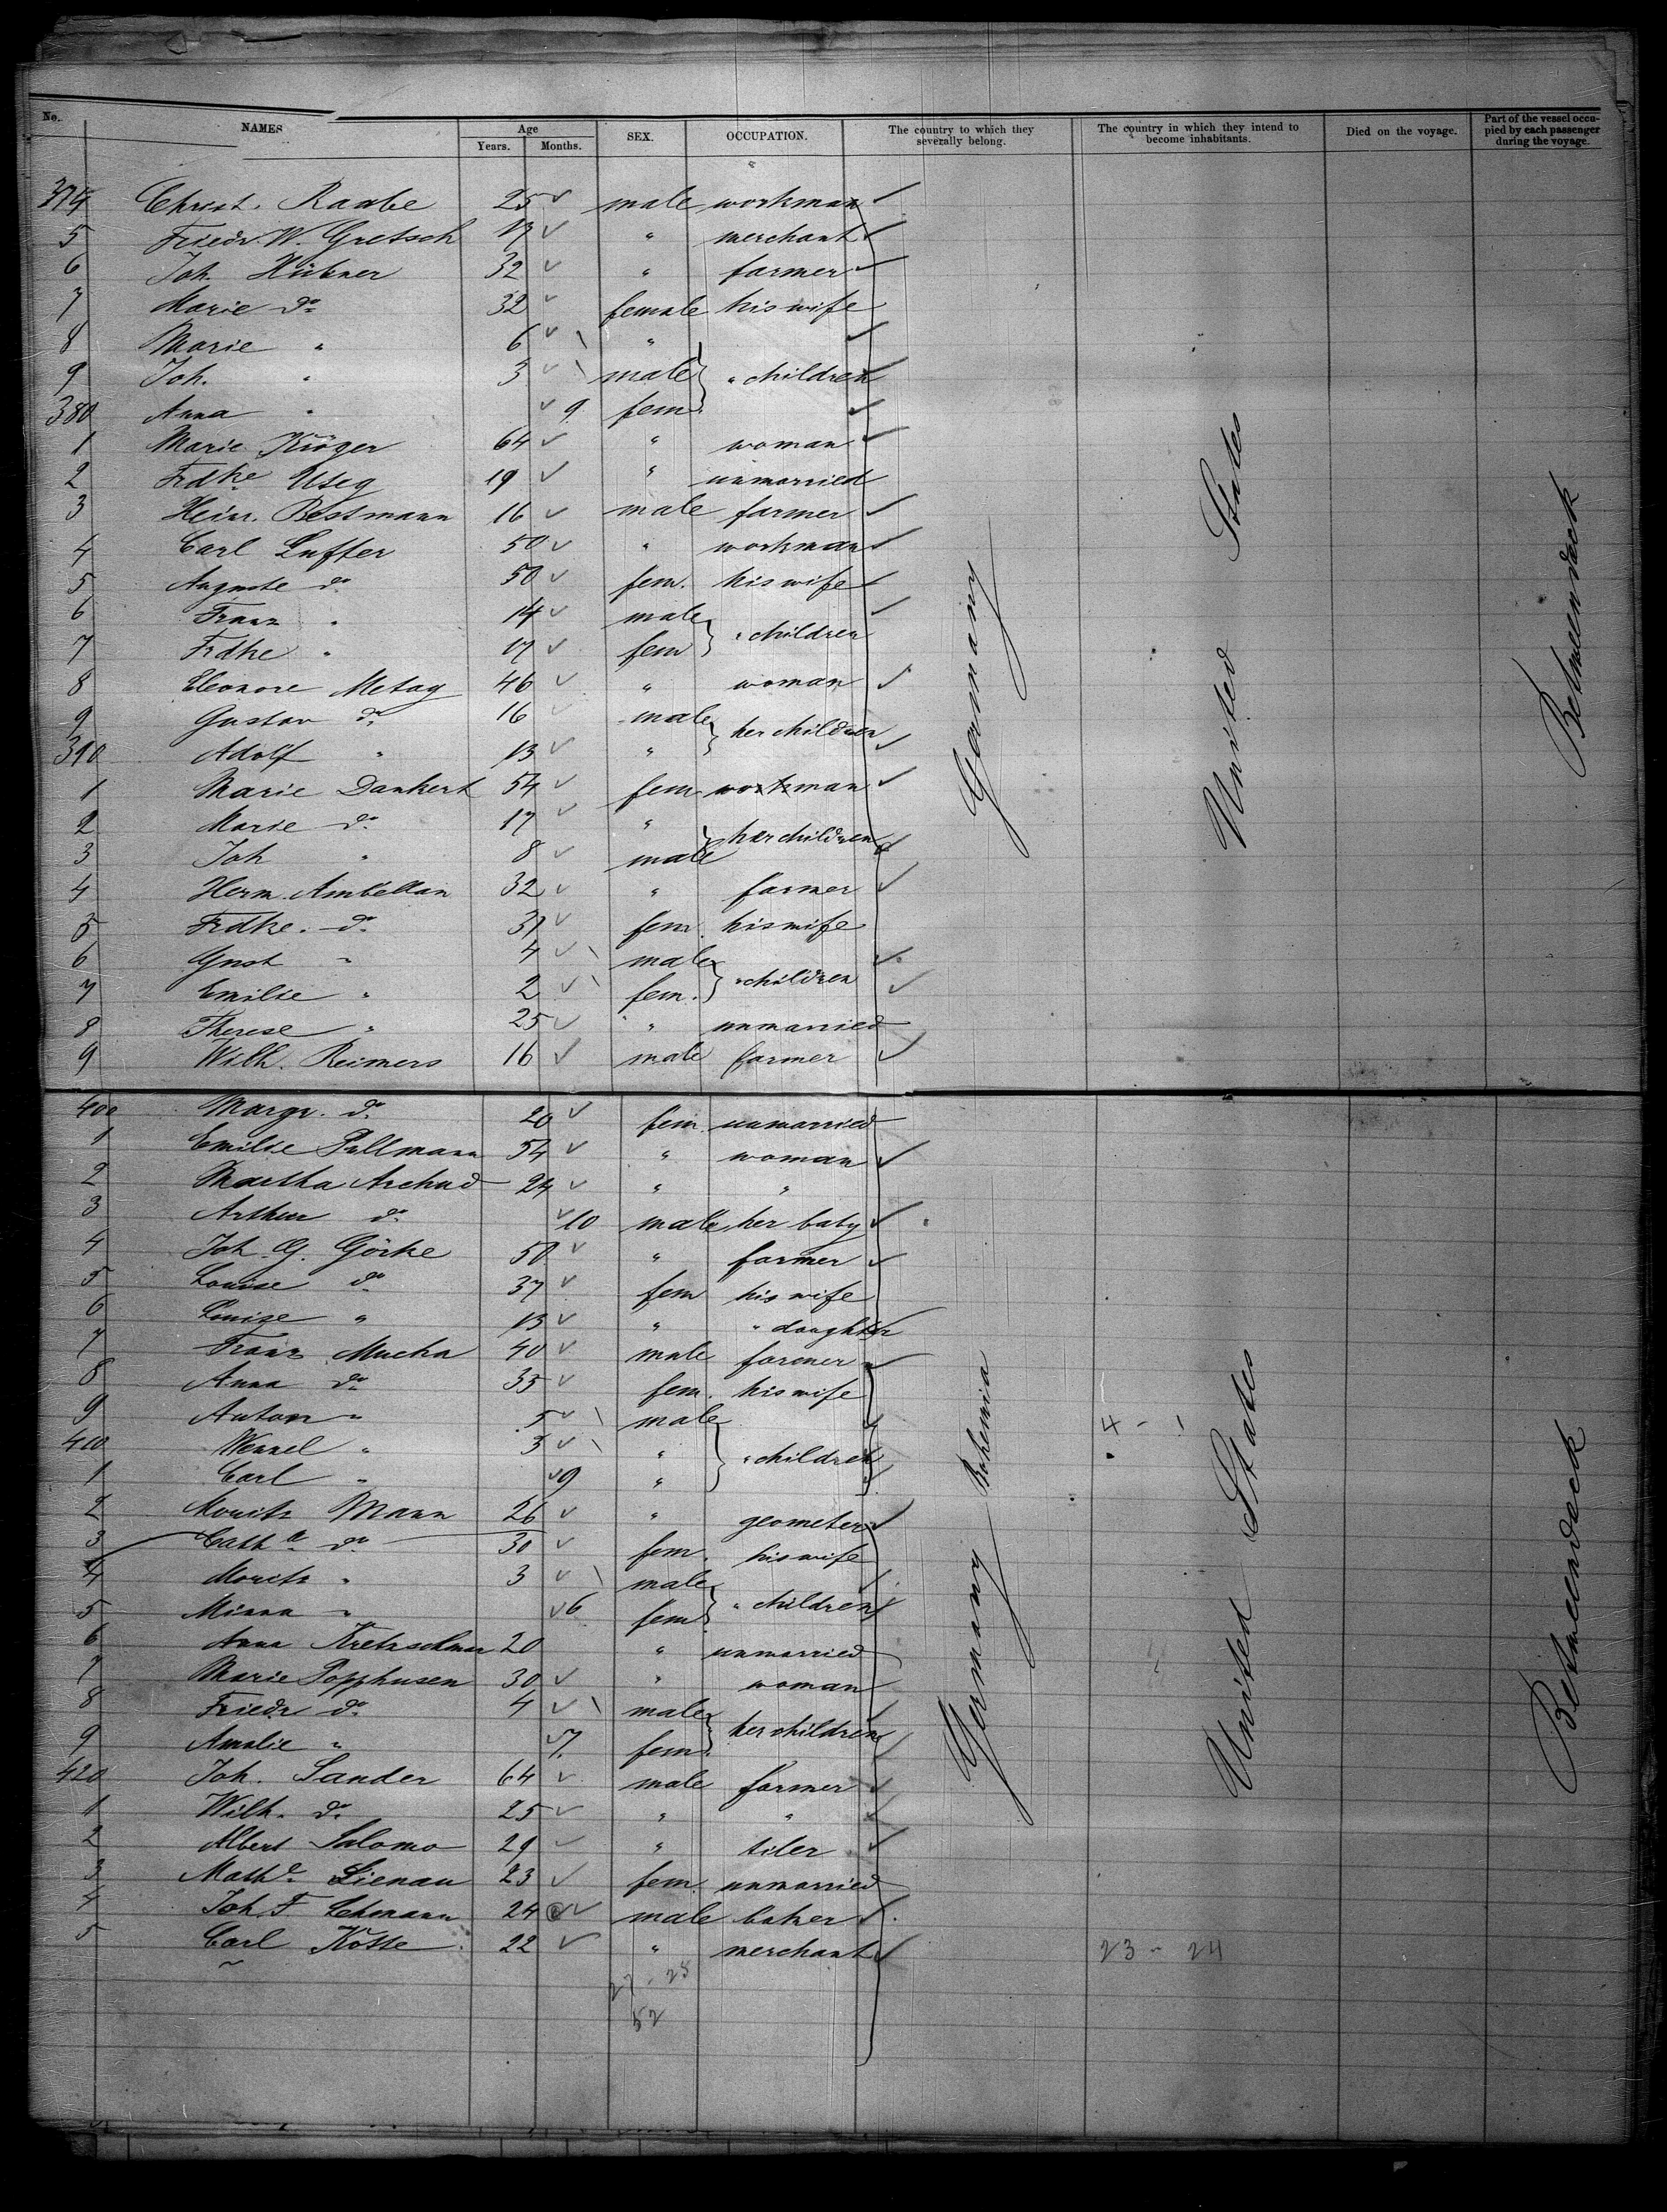 No. NAMES Age Years. Months. SEX. OCCUPATION. The country to which they severally belong. The country in which they intend to become inhabitants. Died on the voyage. Part of the vessel occupied by each passenger during the voyage.
374 Christ. Raabe 25 male workman
5 Friedr. W. Gretsch 17 " merchant
6 Joh. Hübner 32 " farmer
7 Marie do 32 female his wife
8 Marie " 6 "
9 Joh. " 3 male " children
380 Anna " 9 fem.
1 Marie Kröger 64 " woman
2 Frdke Useg 19 " unmarried
3 Heinr. Bestmann 16 male farmer
4 Carl Luffer 50 " workman
5 Auguste do 50 fem. his wife
6 Franz " 14 male " children
7 Frdke " 17 fem
8 Eleonore Metag 46 " woman
9 Gustav do 16 male her children
390 Adolf " 13 "
1 Marie Dankert 54 fem woman
2 Marie do 17 " her children
3 Joh " 8 male
4 Herm. Ambellan 32 " farmer
5 Frdke. do 31 fem. his wife
6 Gust " 4 male " children
7 Emilie " 2 fem.
8 Therese " 25 " unmarried
9 Wilh. Reimers 16 male farmer
Germany United States Betweendeck
400 Margr. do 20 fem. unmarried
1 Emilie Pullmann 54 " woman
2 Martha Archud 24 " "
3 Arthur do 10 male her baby
4 Joh. G. Görke 50 " farmer
5 Louise do 37 fem his wife
6 Louise " 13 " " daughter
7 Franz Mucha 40 male farmer
8 Anna do 35 fem. his wife
9 Anton " 5 male 4 - 1
410 Wenzel " 3 " " children
1 Carl " 9 "
Bohemia
2 Moritz Mann 26 " geometer
3 Cathe do 30 fem. his wife
4 Moritz " 3 male " children
5 Minna " 6 fem.
6 Anna Kretzschmar 20 " unmarried
7 Marie Popphusen 30 " woman
8 Friedr do 4 male her children
9 Amalie " 7 fem.
420 Joh. Sander 64 male farmer
1 Wilh. do 25 " "
2 Albert Salomo 29 " tiler
3 Mathe Lienau 23 fem. unmarried
4 Joh. F Lehmann 24 male baker
5 Carl Kotte 22 " merchant 23 - 24
Germany United States Betweendeck
27 - 25
52